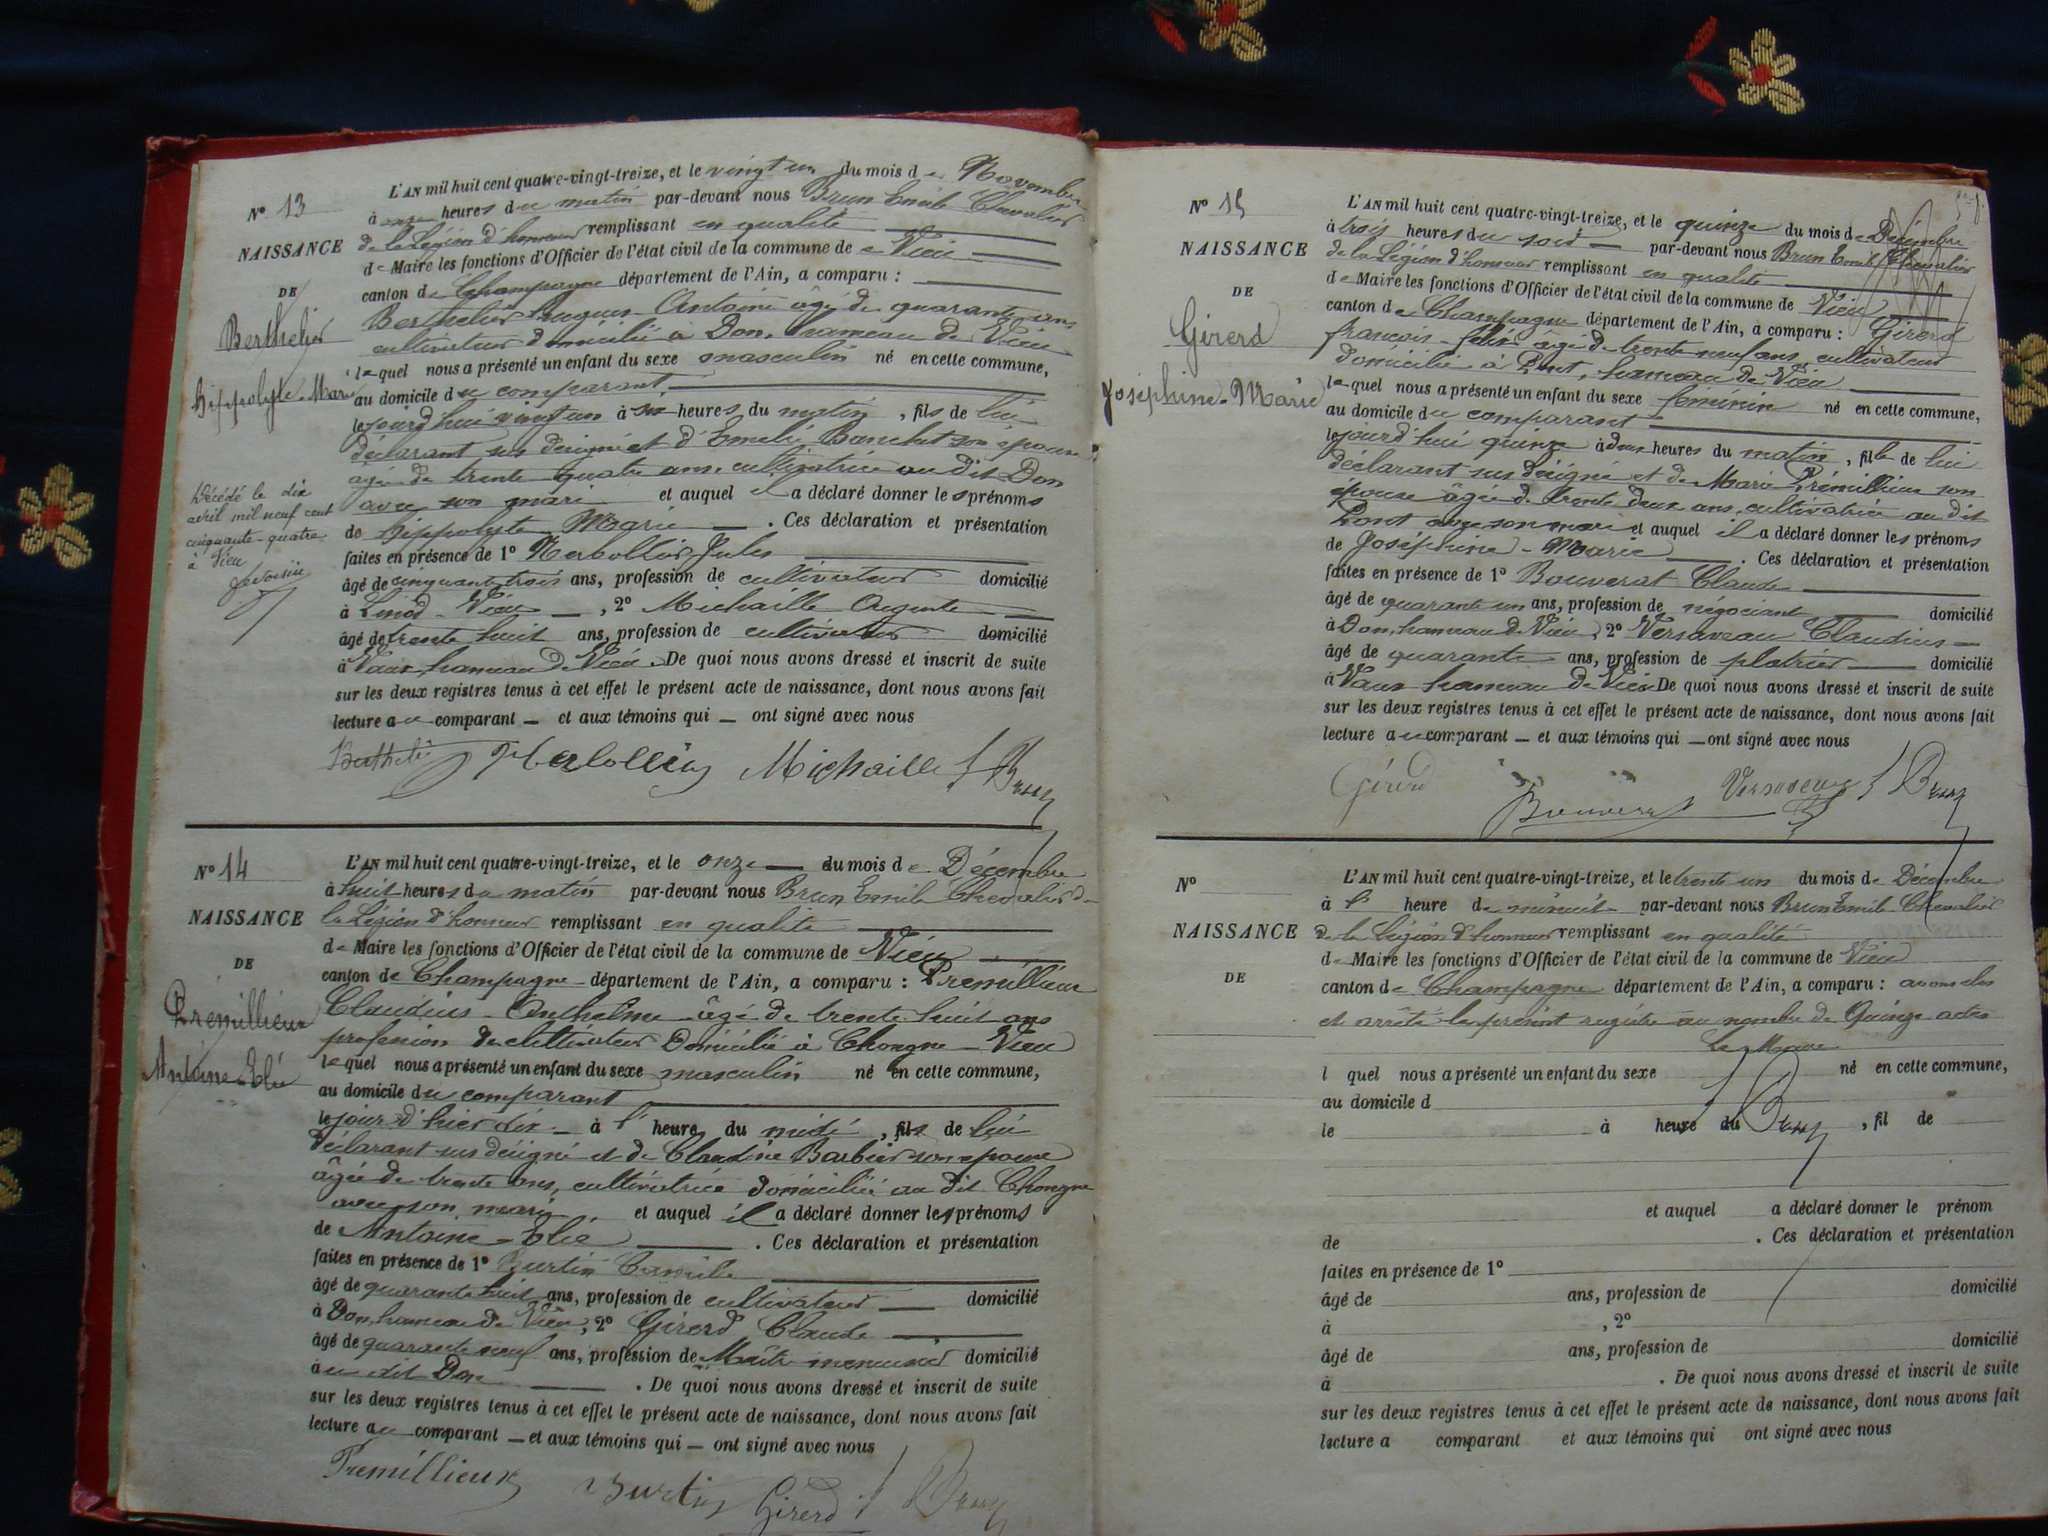 N° 13
NAISSANCE
DE
Berthelier
Hippolyte-Marie
Décédé le dix
avril mil neuf cent
cinquante-quatre
à Vieu
L'AN mil huit cent quatre-vingt-treize, et le vingt un du mois de Novembre
à onze heures du matin par-devant nous Brun Emile Chevalier
de la Légion d'honneur remplissant en qualité
de Maire les fonctions d'Officier de l'état civil de la commune de Vieu
canton de Champagne département de l'Ain, a comparu :
Berthelier Antoine âgé de quarante ans
cultivateur domicilié à Don, hameau de Vieu
lequel nous a présenté un enfant du sexe masculin né en cette commune,
au domicile du comparant
le jourd'hui vingt un à six heures du matin, fils de lui
déclarant sus désigné et d'Emélie Banchet son épouse
agée de trente quatre ans cultivatrice au dit Don
avec son mari et auquel il a déclaré donner les prénoms
de Hippolyte Marie. Ces déclaration et présentation
faites en présence de 1° Jules
âgé de cinquante trois ans, profession de cultivateur domicilié
à Linod - Vieu, 2° Michaille
âgé de trente huit ans, profession de cultivateur domicilié
à Vaux hameau de Vieu. De quoi nous avons dressé et inscrit de suite
sur les deux registres tenus à cet effet le présent acte de naissance, dont nous avons fait
lecture au comparant et aux témoins qui ont signé avec nous
Michaille Brun
N° 14
NAISSANCE
DE
Prémillieux
Antoine-Elie
L'AN mil huit cent quatre-vingt-treize, et le onze du mois de Décembre
à huit heures du matin par-devant nous Brun Emile Chevalier de
la Légion d'honneur remplissant en qualité
de Maire les fonctions d'Officier de l'état civil de la commune de Vieu
canton de Champagne département de l'Ain, a comparu : Prémillieux
Claudius Anthelme âgé de trente huit ans
profession de cultivateur Domicilié à Chongne - Vieu
lequel nous a présenté un enfant du sexe masculin né en cette commune,
au domicile du comparant
le jour d'hier dix à l' heure du midi, fils de lui
déclarant sus désigné et de Claudine Barbier son épouse
âgée de trente ans, cultivatrice domiciliée au dit Chongne
avec son mari et auquel il a déclaré donner les prénoms
de Antoine-Elie. Ces déclaration et présentation
faites en présence de 1° Burtin Camille
âgé de quarante huit ans, profession de cultivateur domicilié
à Don, hameau de Vieu, 2° Girerd Claude
âgé de quarante neuf ans, profession de Maître menuisier domicilié
à au dit Don. De quoi nous avons dressé et inscrit de suite
sur les deux registres tenus à cet effet le présent acte de naissance, dont nous avons fait
lecture au comparant et aux témoins qui ont signé avec nous
Premillieux Burtin Girerd Brun
N° 15
NAISSANCE
DE
Girerd
Joséphine-Marie
L'AN mil huit cent quatre-vingt-treize, et le quinze du mois de Décembre
à trois heures du soir par-devant nous Brun Emile Chevalier
de la Légion d'honneur remplissant en qualité
de Maire les fonctions d'Officier de l'état civil de la commune de Vieu
canton de Champagne département de l'Ain, a comparu : Girerd
françois-félix âgé de trente neuf ans, cultivateur
domicilié à Pont, hameau de Vieu
lequel nous a présenté un enfant du sexe féminin né en cette commune,
au domicile du comparant
le jourd'hui quinze à deux heures du matin, fille de lui
déclarant sus désigné et de Marie Prémillieux son
épouse âgée de trente deux ans, cultivatrice au dit
Pont avec son mari et auquel il a déclaré donner les prénoms
de Joséphine-Marie. Ces déclaration et présentation
faites en présence de 1° Bouverat Claude
âgé de quarante un ans, profession de négociant domicilié
à Don, hameau de Vieu, 2° Versaveau Claudius
âgé de quarante ans, profession de platrier domicilié
à Vaux hameau de Vieu De quoi nous avons dressé et inscrit de suite
sur les deux registres tenus à cet effet le présent acte de naissance, dont nous avons fait
lecture au comparant et aux témoins qui ont signé avec nous
Girerd Bouverat Versaveau Brun
N°
NAISSANCE
DE
L'AN mil huit cent quatre-vingt-treize, et le trente un du mois de Décembre
à l' heure de minuit par-devant nous Brun Emile Chevalier
de la Légion d'honneur remplissant en qualité
de Maire les fonctions d'Officier de l'état civil de la commune de Vieu
canton de Champagne département de l'Ain, a comparu : avons clos
et arrêté le présent registre au nombre de Quinze actes
Le Maire
l quel nous a présenté un enfant du sexe né en cette commune,
au domicile d
le à heure du Brun, fil de
et auquel a déclaré donner le prénom
de . Ces déclaration et présentation
faites en présence de 1°
âgé de ans, profession de domicilié
à , 2°
âgé de ans, profession de domicilié
à . De quoi nous avons dressé et inscrit de suite
sur les deux registres tenus à cet effet le présent acte de naissance, dont nous avons fait
lecture a comparant et aux témoins qui ont signé avec nous